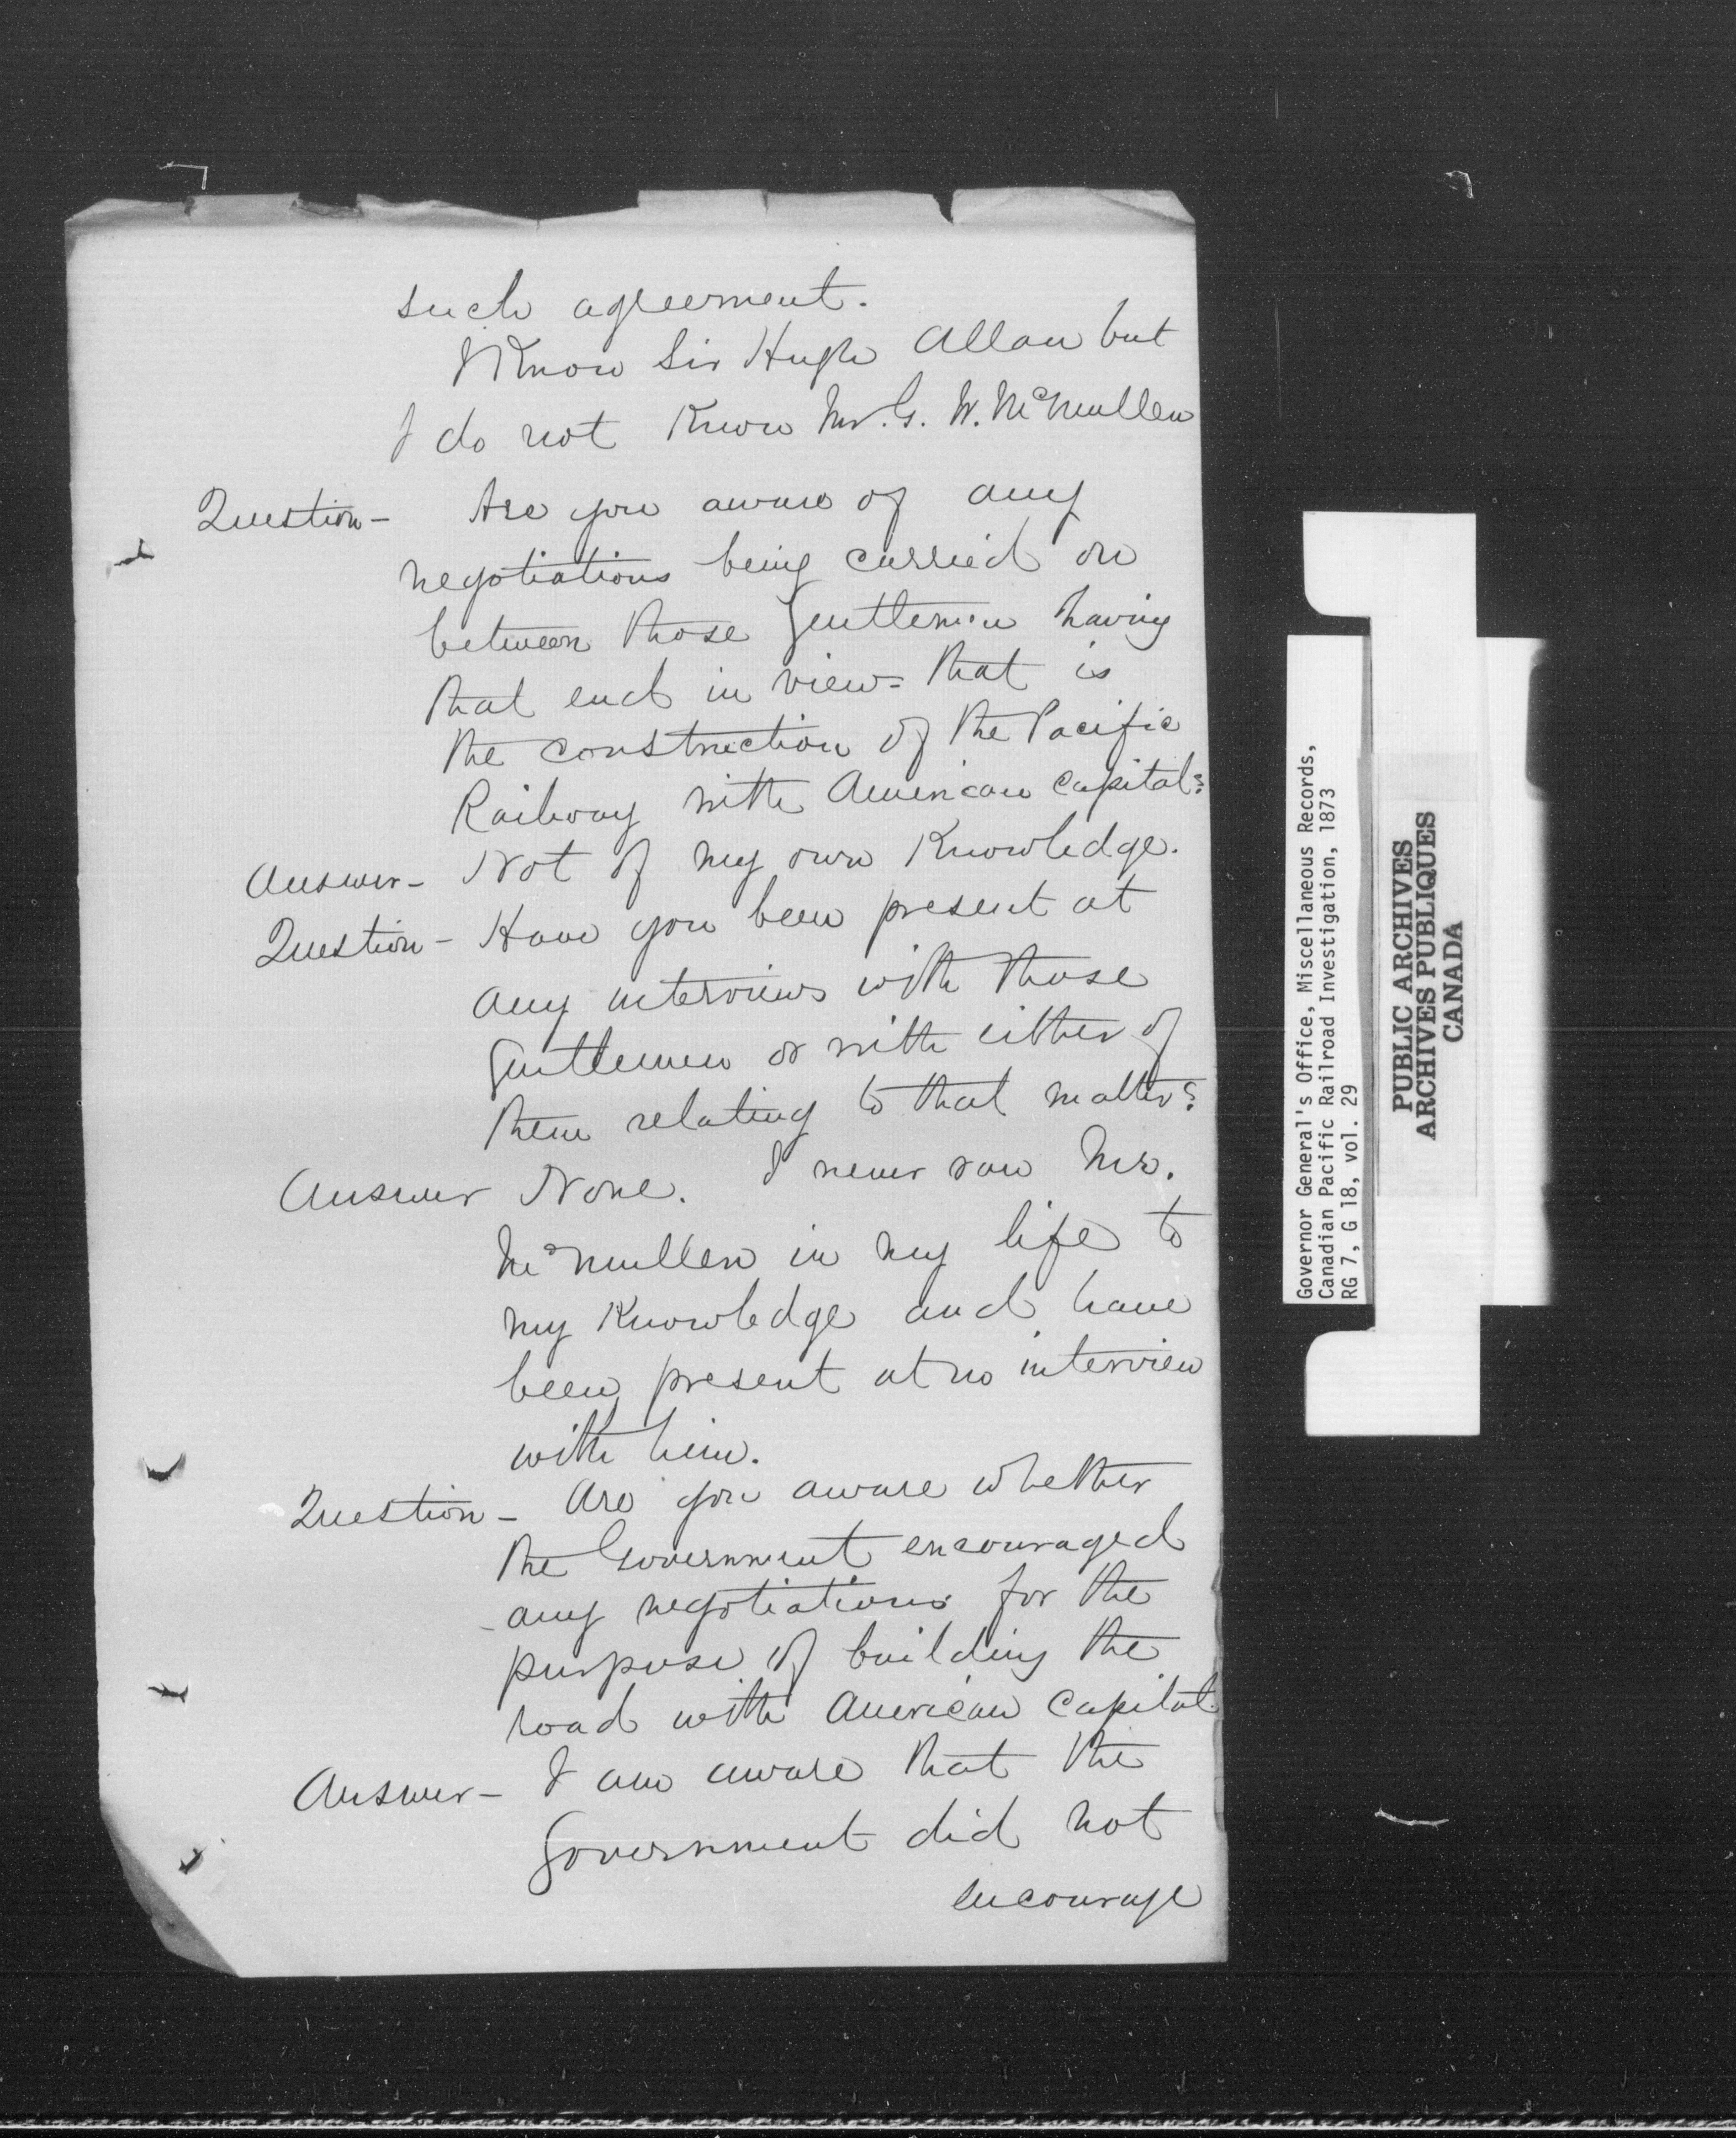 such agreement.
I Know Sir Hugh Allan but
I do not Know Mr. G. W. McMullen
Question - Are you aware of any
negotiations being carried on
between those Gentlemen having
that end in view = that is
the construction of the Pacific
Railway with American Capital?
Answer - Not of my own Knowledge.
Question - Have you been present at
any interviews with those
Gentlemen or with either of
them relating to that matter?
Answer None. I never saw Mr.
McMullen in my life to
my Knowledge and have
been present at no interview
with him.
Question - Are you aware whether
the Government encouraged
any negotiations for the
purpose of building the
road with American Capital
Answer - I am aware that the
Government did not
encourage
Governor General's Office, Miscellaneous Records,
Canadian Pacific Railroad Investigation, 1873
RG 7, G 18, vol. 29
PUBLIC ARCHIVES
ARCHIVES PUBLIQUES
CANADA